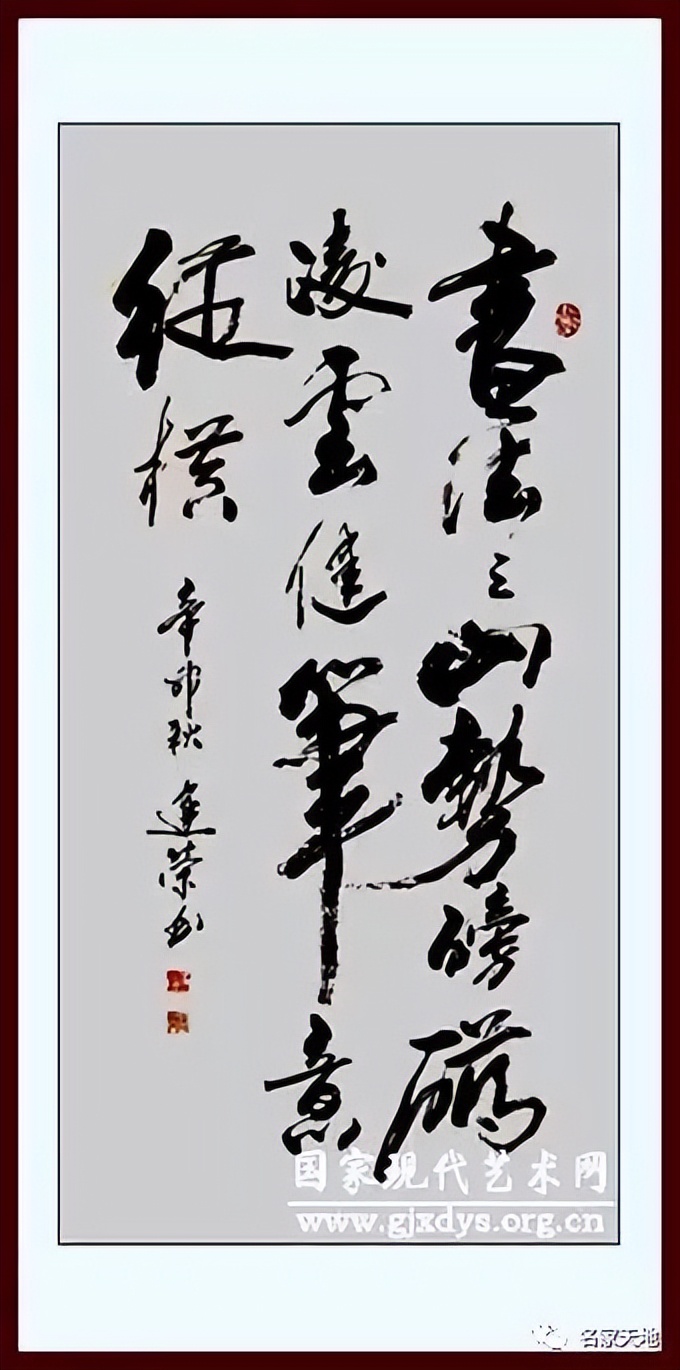 書法之山勢磅礴
凌雲健筆意
縱橫
辛卯秋
榮书
国家现代艺术网
www.gjxdys.org.cn
名家天地